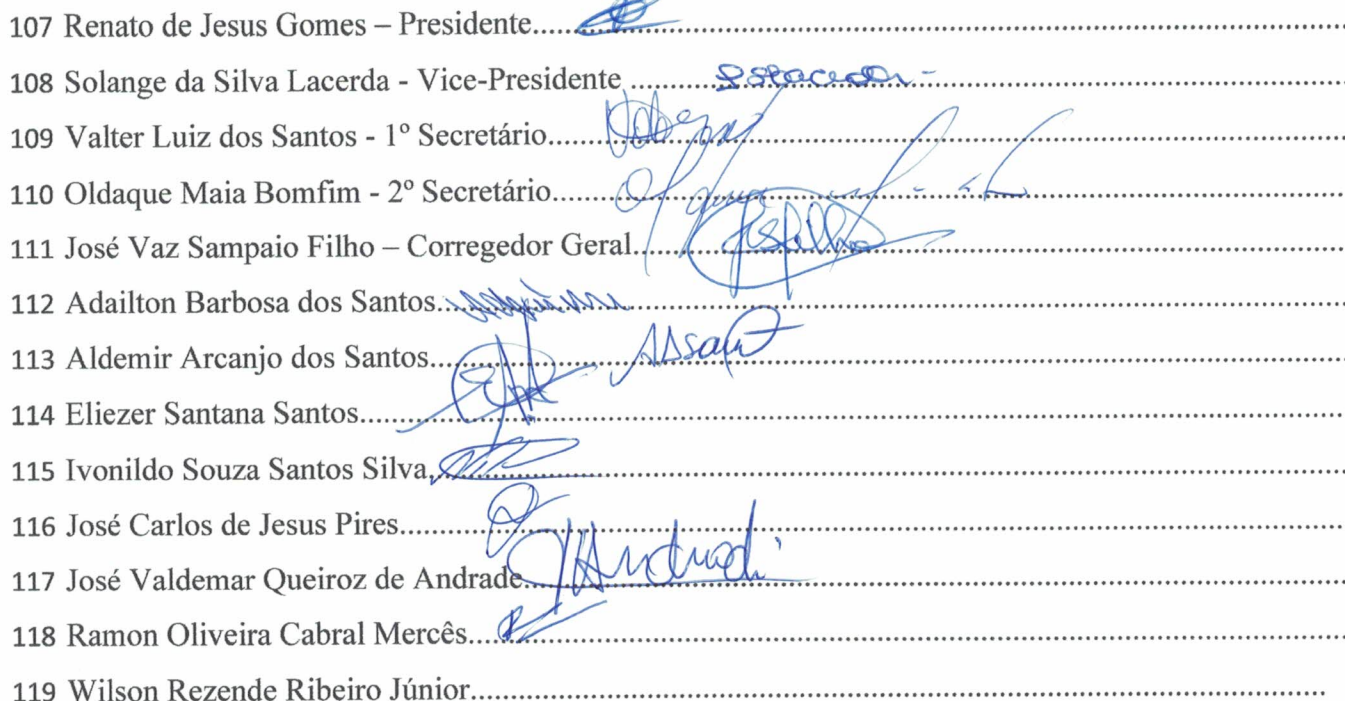 107 Renato de Jesus Gomes – Presidente................................................
108 Solange da Silva Lacerda - Vice-Presidente ................................................
109 Valter Luiz dos Santos - 1º Secretário................................................
110 Oldaque Maia Bomfim - 2º Secretário................................................
111 José Vaz Sampaio Filho – Corregedor Geral................................................
112 Adailton Barbosa dos Santos................................................
113 Aldemir Arcanjo dos Santos................................................
114 Eliezer Santana Santos................................................
115 Ivonildo Souza Santos Silva................................................
116 José Carlos de Jesus Pires................................................
117 José Valdemar Queiroz de Andrade................................................
118 Ramon Oliveira Cabral Mercês................................................
119 Wilson Rezende Ribeiro Júnior................................................